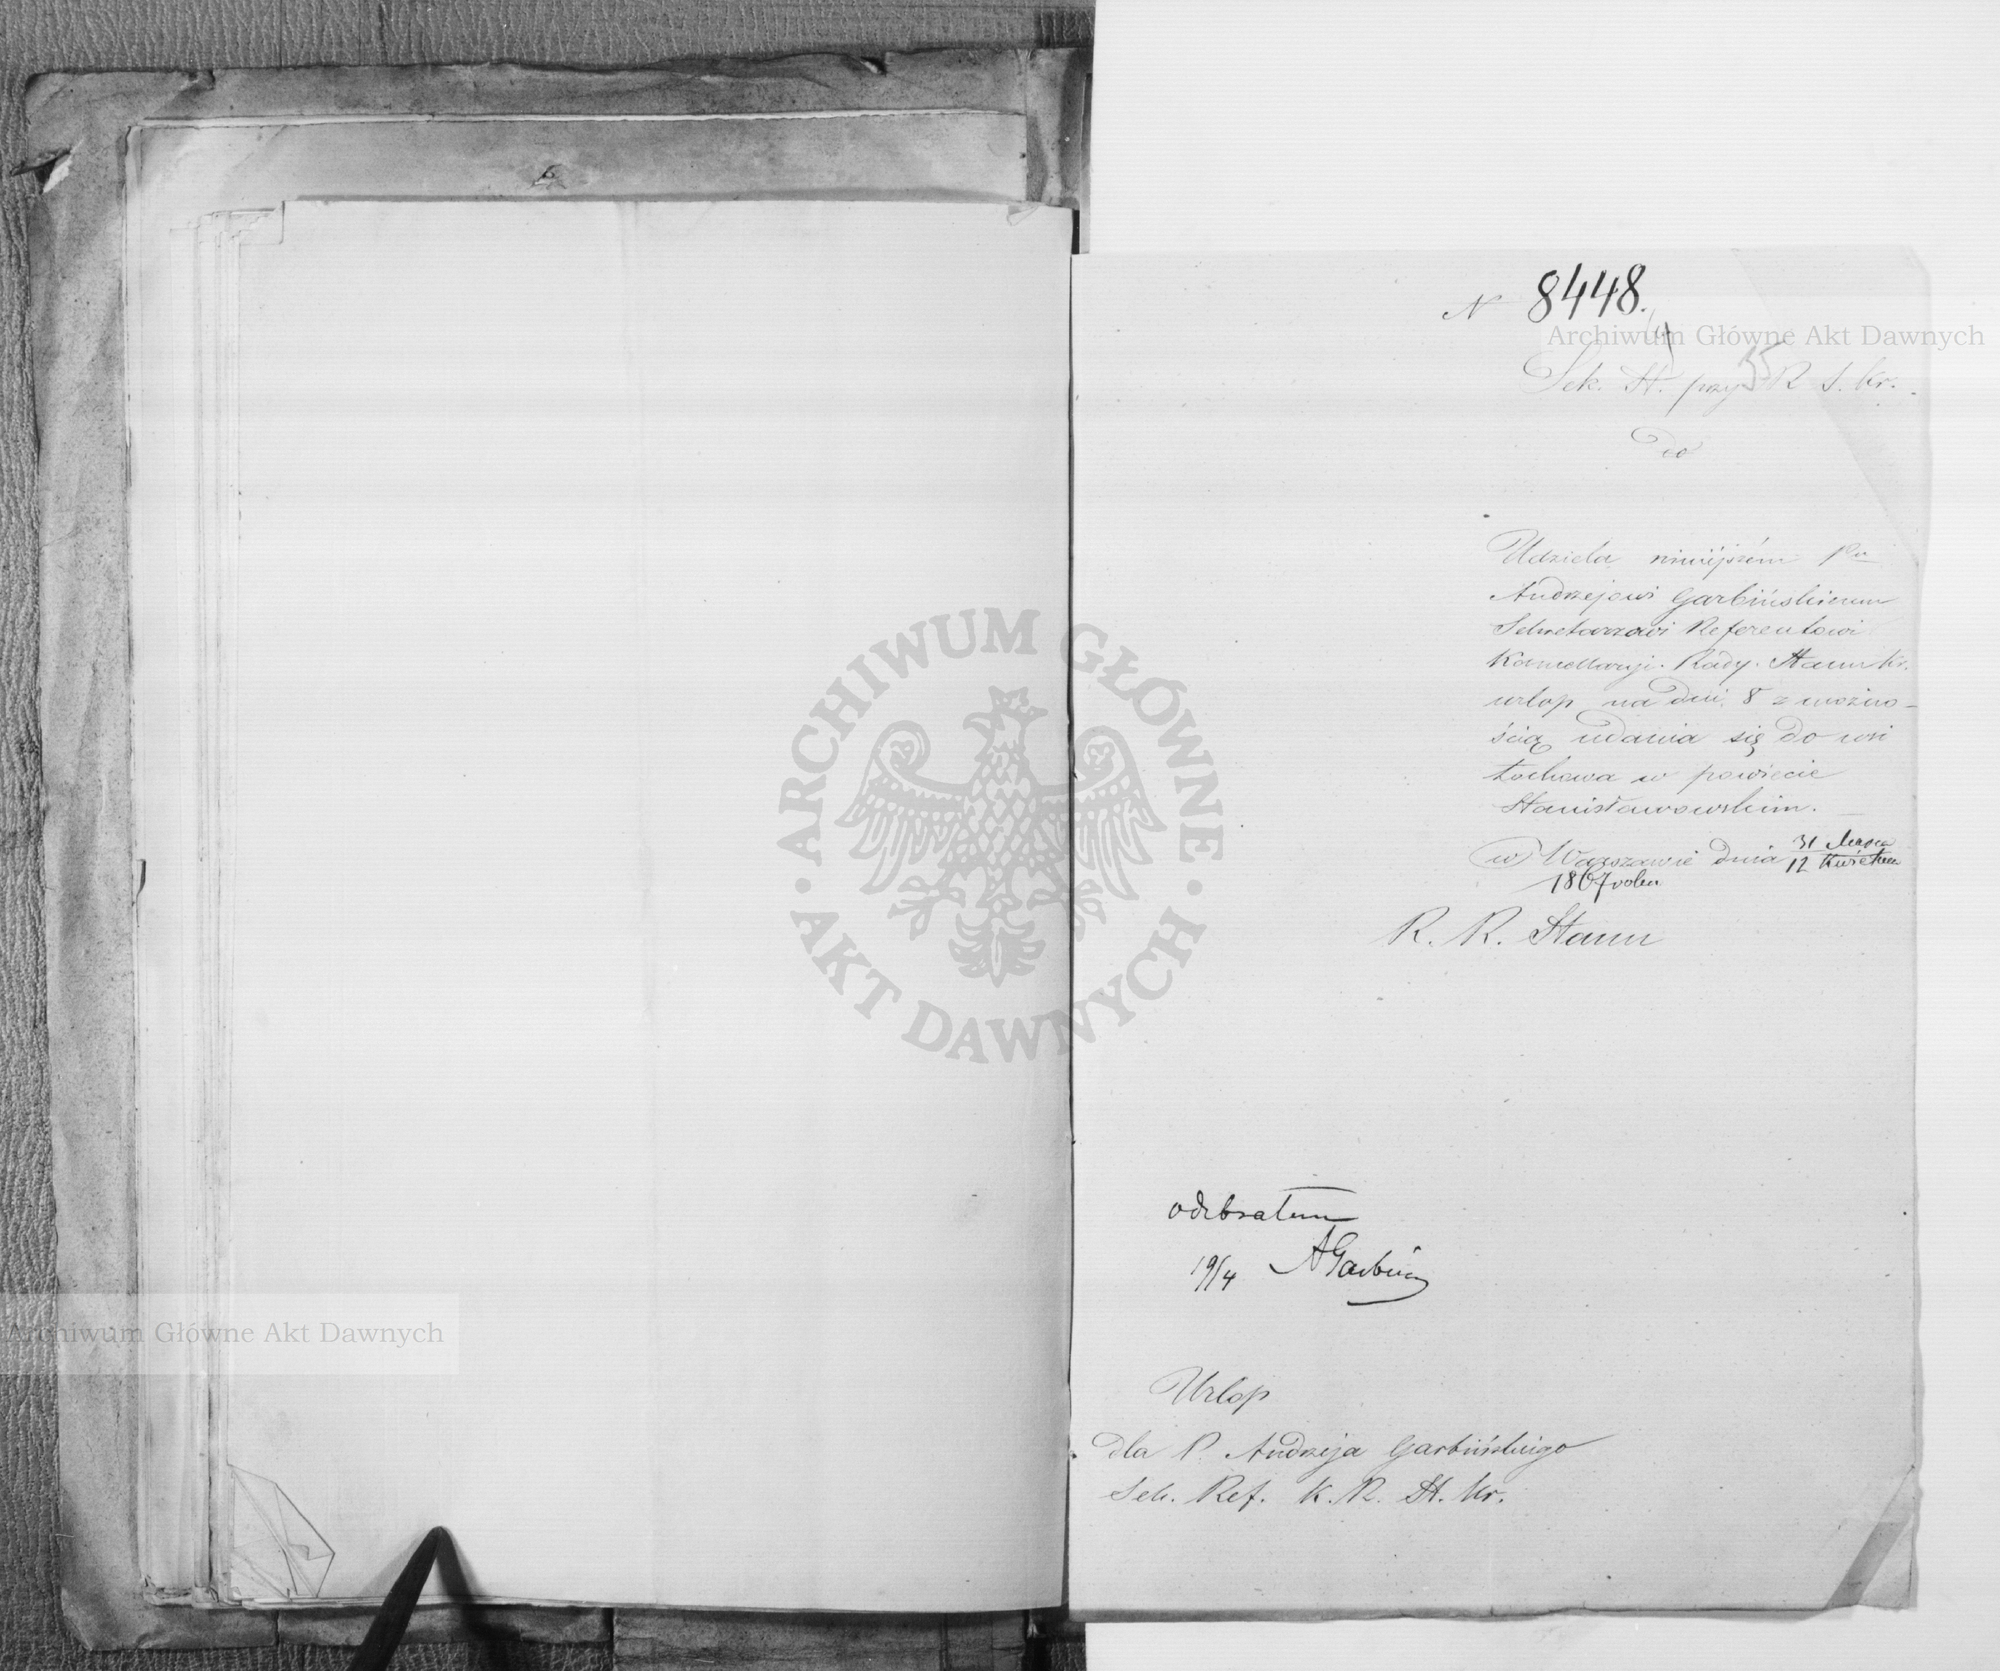 6
N 8448.
Archiwum Główne Akt Dawnych
35
Sek. St. przy R S. Kr.
do
Udziela niniéjszém Pu
Andrzejowi Garbińskiemu
Sekretarzowi Referentowi
Kancellaryi Rady Stanu Kr.
urlop na dni 8 z możno-
ścią udania się do wsi
w powiecie
Stanisławowskim.
w Warszawie dnia 31 Marca
12 Kwietnia
1867 roku
R. R. Stanu
ARCHIWUM GŁÓWNE AKT DAWNYCH
odebrałem
19/4 AGarbiń
Archiwum Główne Akt Dawnych
Urlop
dla P. Andrzeja Garbińskiego
Sek. Ref. K. R. St. Kr.